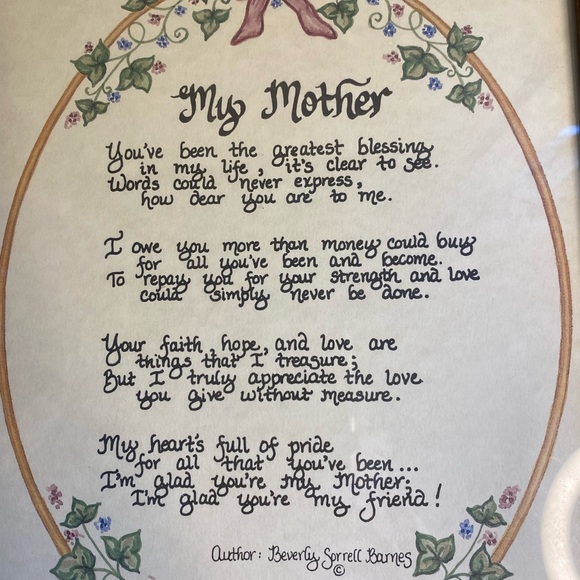 My Mother
You've been the greatest blessing
in my life, it's clear to see.
Words could never express,
how dear you are to me.
I owe you more than money could buy
for all you've been and become.
To repay you for your strength and love
could simply never be done.
Your faith, hope, and love are
things that I treasure;
But I truly appreciate the love
you give without measure.
My heart's full of pride
for all that you've been...
I'm glad you're my Mother;
I'm glad you're my friend!
Author: Beverly Sorrell Barnes
©